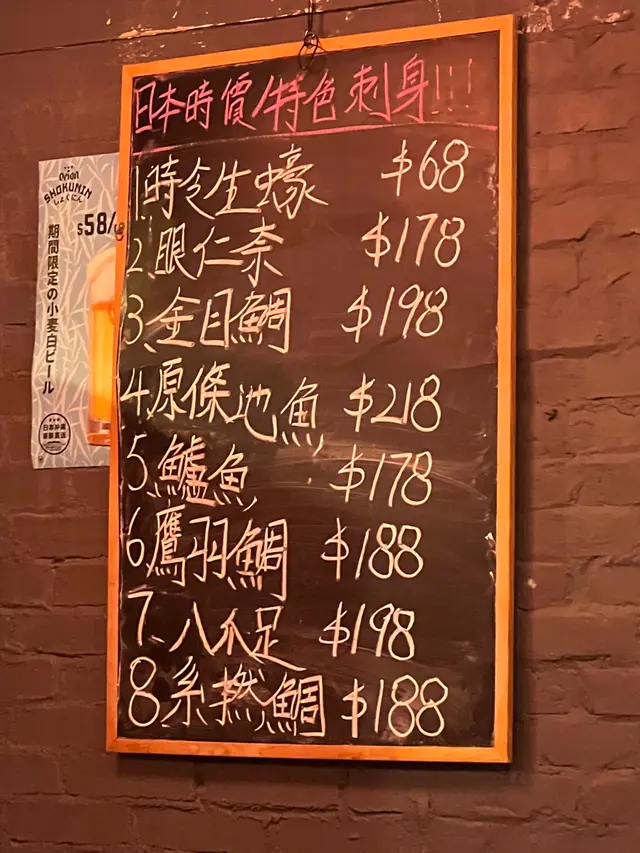 日本時價/特色刺身!!!
1.時令生蠔 $68
2.眼仁奈 $178
3.金目鯛 $198
4.原條池魚 $218
5.鱸魚 $178
6.鷹羽鯛 $188
7.八爪足 $198
8.糸撚鯛 $188
Orion
SHOKUNIN
しょくにん
$58/
期間限定の小麦白ビール
日本沖縄